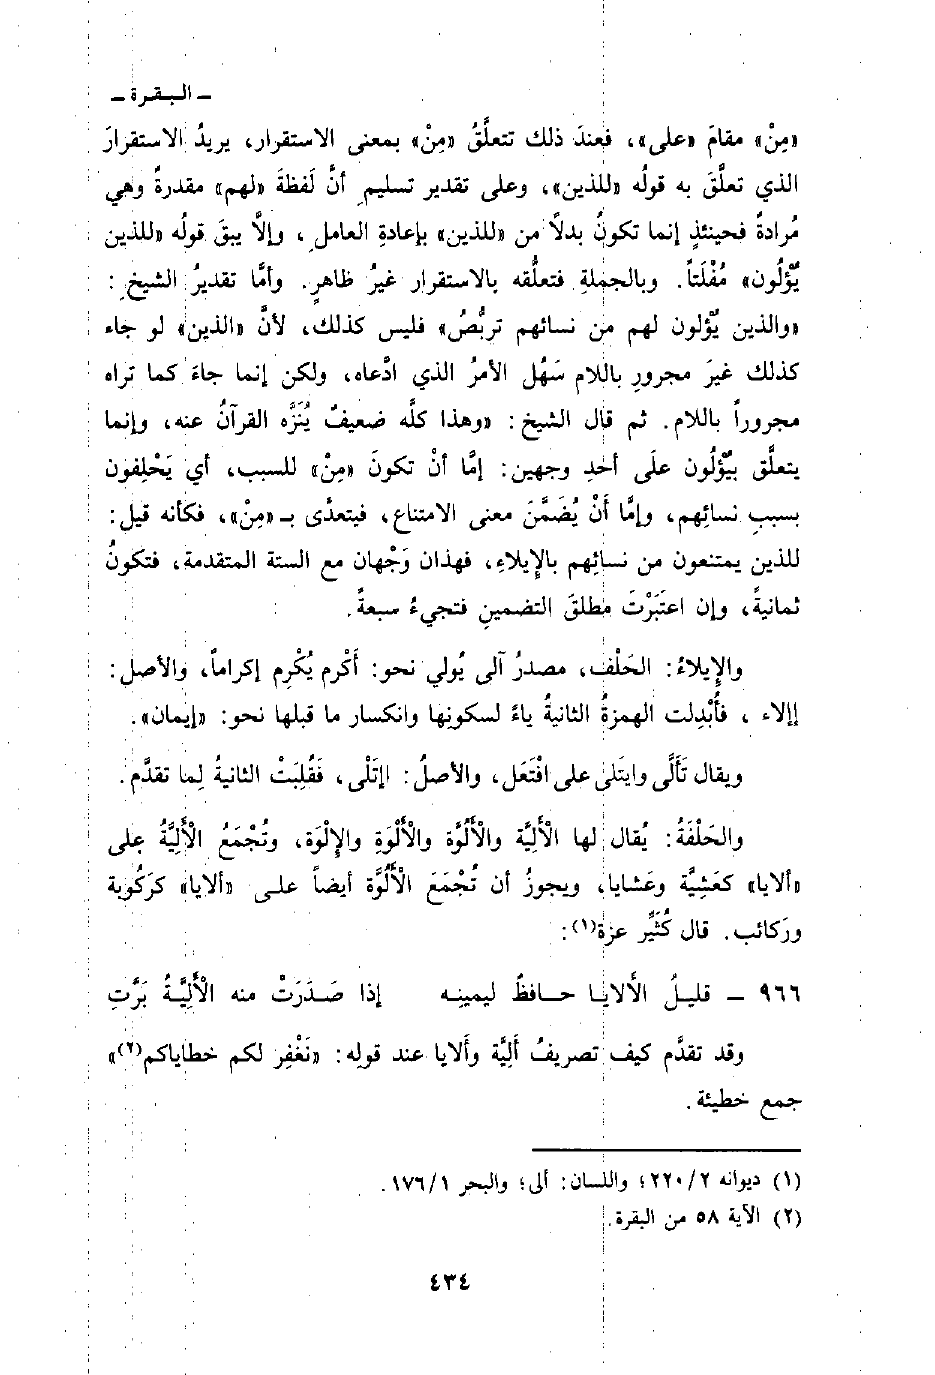 ـ البقرة ـ
«مِنْ» مقامَ «على»، فعندَ ذلك تتعلَّقُ «مِنْ» بمعنى الاستقرار، يريدُ الاستقرارَ
الذي تعلَّقَ به قولُه «للذين»، وعلى تقدير تسليمِ أنَّ لَفظةَ «لهم» مقدرةٌ وهي
مُرادةٌ فحينئذٍ إنما تكونُ بدلاً من «للذين» بإعادةِ العاملِ، وإلاَّ يبقَ قولُه «للذين
يُؤْلُون» مُفْلَتاً. وبالجملةِ فتعلُّقه بالاستقرارِ غيرُ ظاهرٍ. وأمَّا تقديرُ الشيخِ:
«والذين يُؤْلون لهم من نسائهم تربُّصُ» فليس كذلك، لأنَّ «الذين» لو جاء
كذلك غيرَ مجرورٍ باللام سَهُل الأمرُ الذي ادَّعاه، ولكن إنما جاءَ كما تراه
مجروراً باللام. ثم قال الشيخ: «وهذا كلُّه ضعيفٌ يُنَزَّه القرآنُ عنه، وإنما
يتعلَّق بيُؤْلُون علَى أحدِ وجهين: إمَّا أنْ تكونَ «مِنْ» للسبب، أي يَحْلِفون
بسببِ نسائِهم، وإمَّا أَنْ يُضَمَّنَ معنى الامتناع، فيتعدَّى بـ «مِنْ»، فكأنه قيل:
للذين يمتنعون من نسائِهم بالإِيلاءِ، فهذان وَجْهان مع الستة المتقدمة، فتكونُ
ثمانيةً، وإن اعتَبَرْتَ مطلقَ التضمينِ فتجيءُ سبعةً.
والإِيلاءُ: الحَلْف، مصدرُ آلى يُولي نحو: أَكْرم يُكْرِم إكراماً، والأصل:
إإلاء، فأُبْدِلت الهمزةُ الثانيةُ ياءً لسكونِها وانكسار ما قبلها نحو: «إيمان».
ويقال تَأَلَّى وايتَلى على افْتَعَل، والأصلُ: ائْتَلى، فَقُلِبَتْ الثانيةُ لِما تقدَّم.
والحَلْفَةُ: يُقال لها الْأَلِيَّة والْأَلُوَّة والْأَلْوَةِ والإِلْوَة، وتُجْمَعُ الْأَلِيَّةُ على
«ألايا» كعَشِيَّة وعَشايا، ويجوزُ أن تُجْمَعَ الْأَلُوَّة أيضاً على «ألايا» كرَكُوبة
ورَكائب. قال كُثَيِّر عزة(١):
٩٦٦ ـ قليلُ الْألايا حافظٌ ليمينه    إذا صَدَرَتْ منه الْأَلِيَّةُ بَرَّتِ
وقد تقدَّم كيف تصريفُ أَلِيَّة وأَلايا عند قوله: «نَغْفِر لكم خطاياكم(٢)»
جمع خطيئة.
(١) ديوانه ٢/٢٢٠؛ واللسان: ألى؛ والبحر ١/١٧٦.
(٢) الآية ٥٨ من البقرة.
٤٣٤